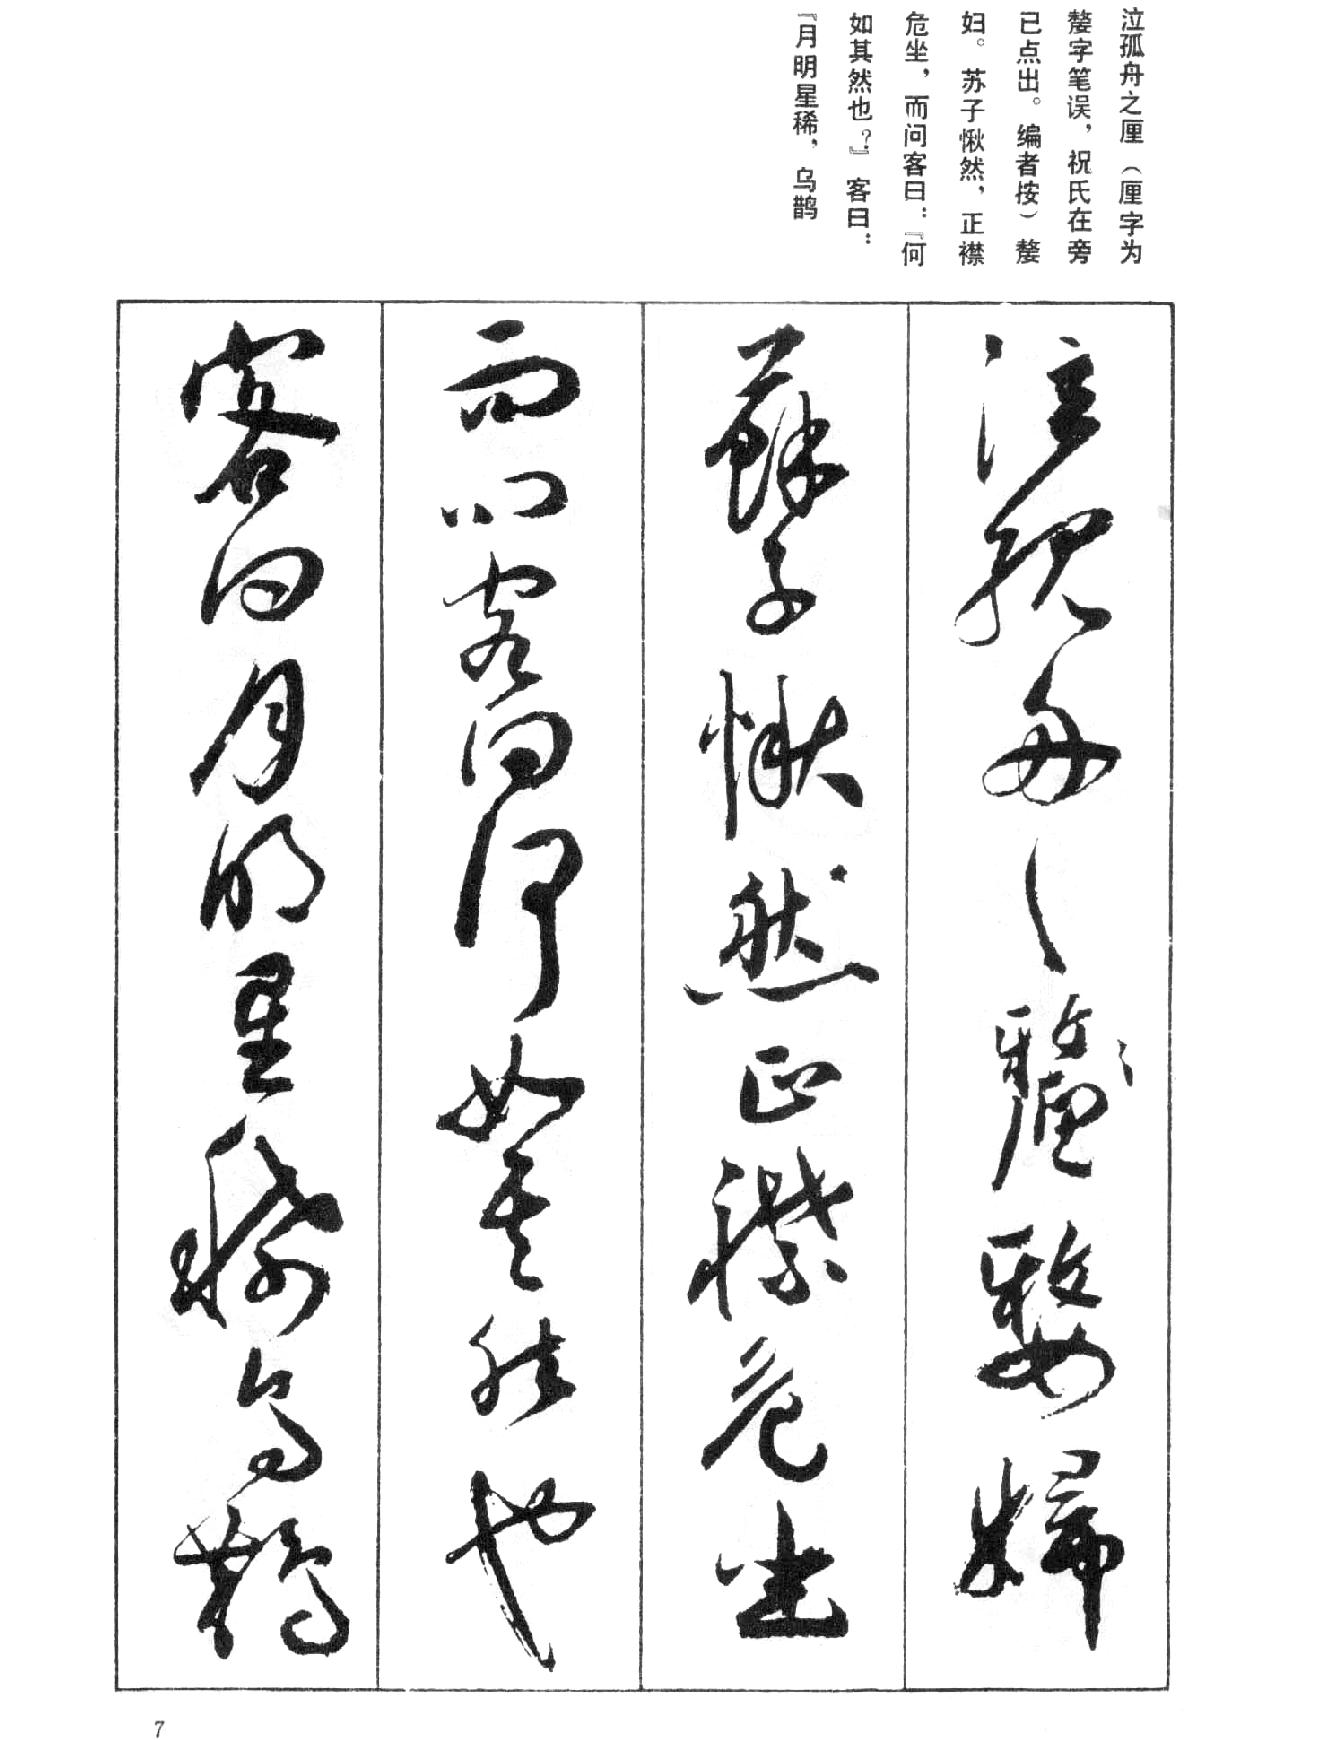 泣孤舟之厘（厘字为
嫠字笔误，祝氏在旁
已点出。编者按）嫠
妇。苏子愀然，正襟
危坐，而问客曰：『何
如其然也？』客曰：
『月明星稀，乌鹊
泣孤舟之釐嫠婦
蘇子愀然正襟危坐
而问客曰何如其然也
客曰月明星稀烏鵲
7